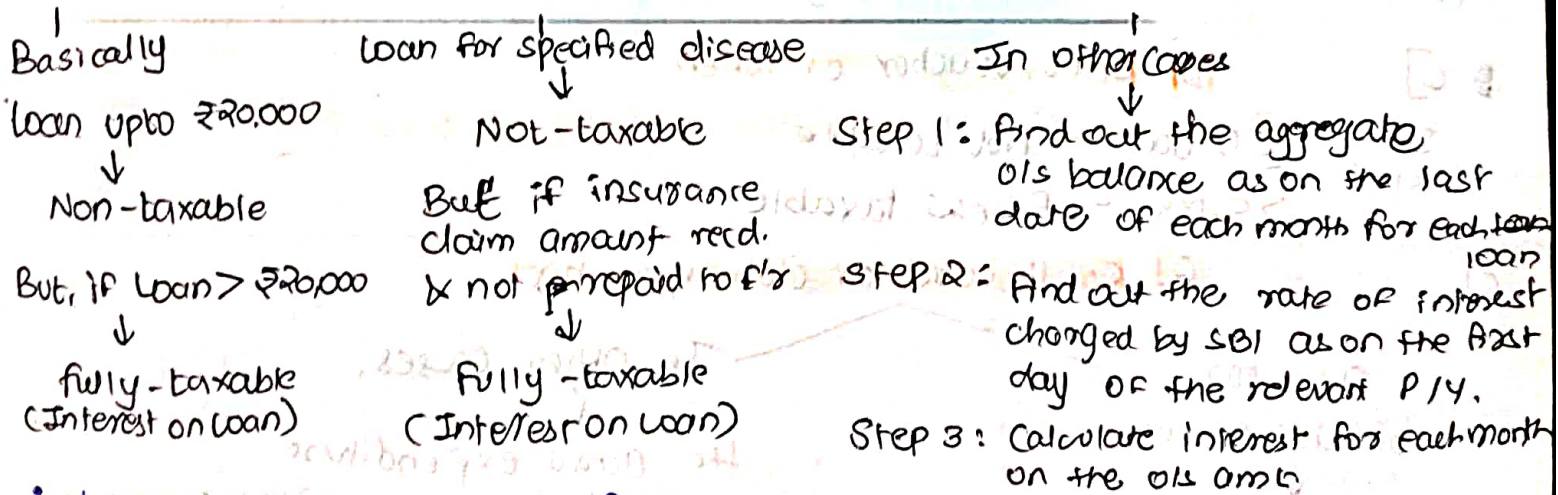 Basically
loan upto ₹20,000
↓
Non-taxable
But, if Loan > ₹20,000
↓
fully-taxable
(Interest on Loan)
Loan for specified disease
↓
Not-taxable
But if insurance
claim amount recd.
& not repaid to f'r
↓
Fully-taxable
(Interest on Loan)
In other cases
↓
Step 1: find out the aggregate
o/s balance as on the last
date of each month for each
loan
Step 2: find out the rate of interest
charged by SBI as on the first
day of the relevant P/Y.
Step 3: Calculate interest for each month
on the o/s amt